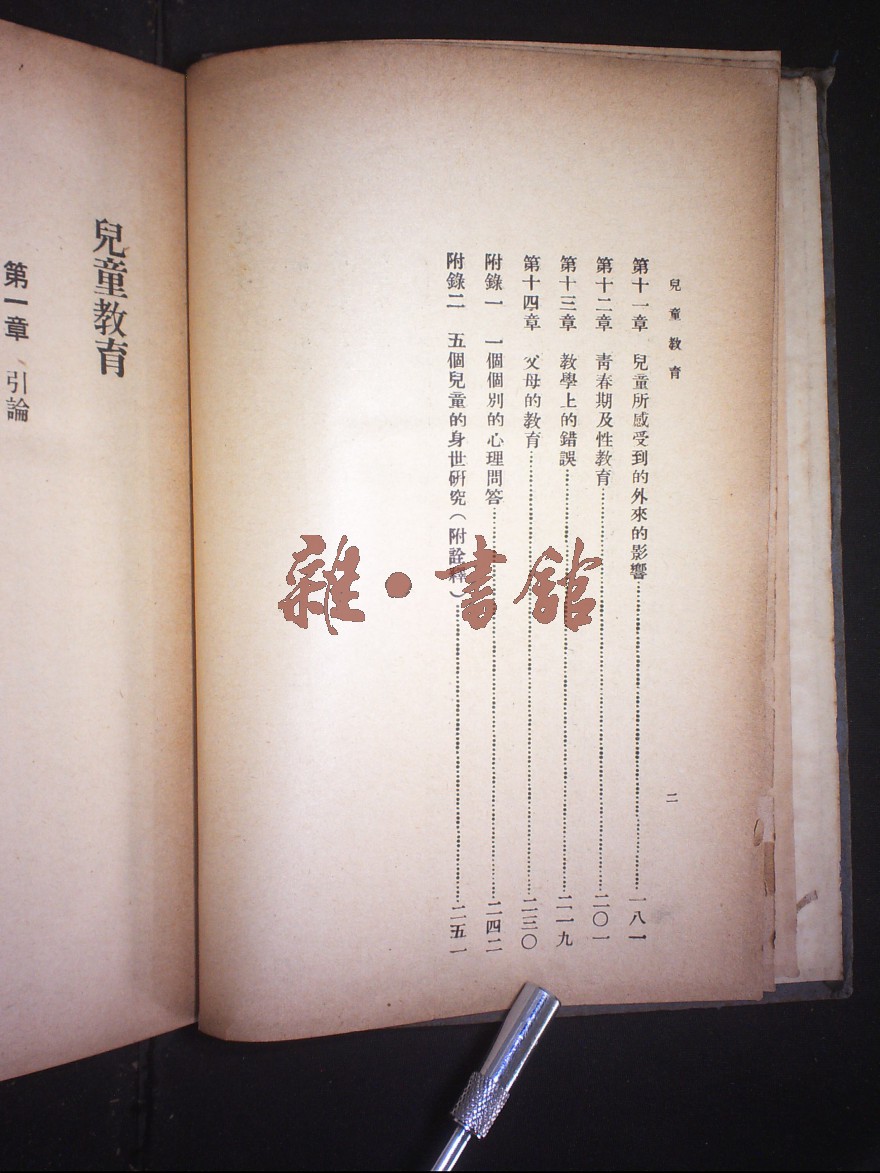 兒童教育
二
第十一章 兒童所感受到的外來的影響……一八一
第十二章 靑春期及性教育……二〇一
第十三章 教學上的錯誤……二一九
第十四章 父母的教育……二三〇
附錄一 一個個別的心理問答……二四二
附錄二 五個兒童的身世硏究(附詮釋)……二五一
兒童教育
第一章 引論
雜·書館